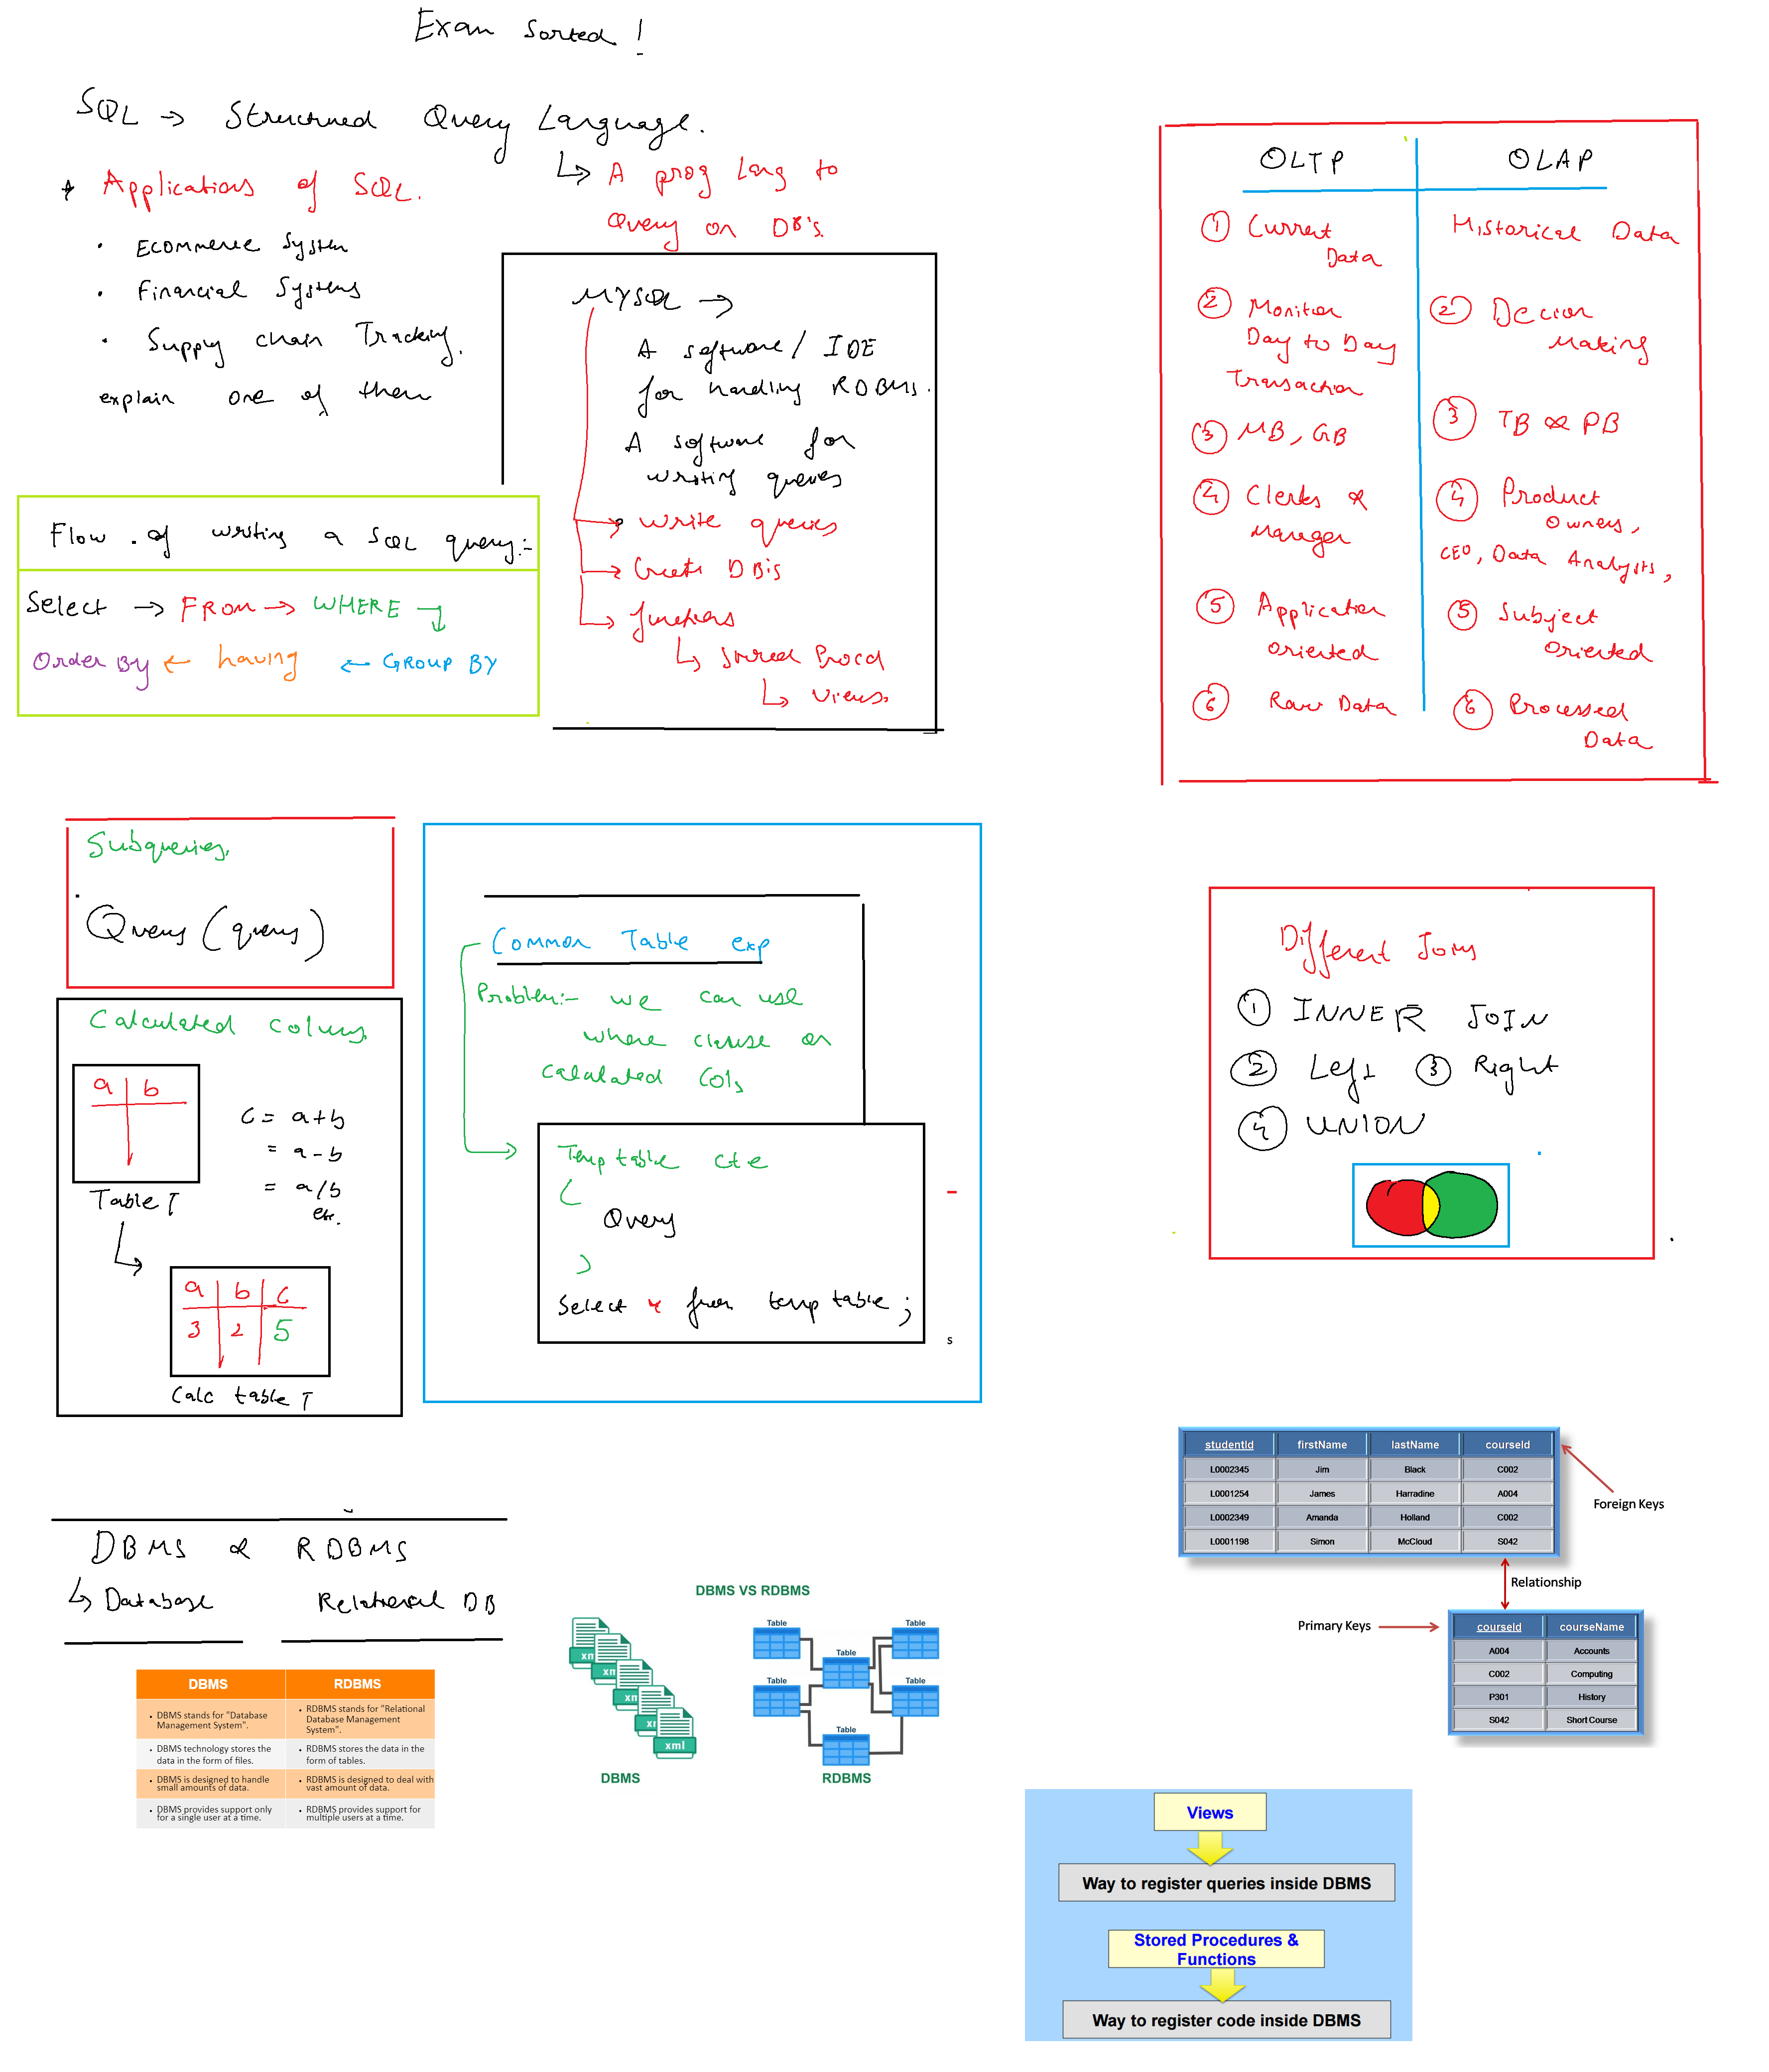 Exam Sorted !
SQL → Structured Query Language.
↳ A prog lang to
Query on DB's.
* Applications of SQL.
• Ecommerce System
• Financial Systems
• Supply chain Tracking.
explain one of them
MYSQL →
A software / IDE
for handling RDBMS.
A software for
writing queries
→ write queries
→ Create DB's
→ functions
↳ Stored Procd
↳ views.
Flow of writing a SQL query:-
Select → FROM → WHERE
Order By ← having ← GROUP BY
OLTP OLAP
① Current Data
Historical Data
② Monitor
Day to Day
Transaction
② Making
③ MB, GB
③ TB & PB
④ Clerks &
Manager
④ Product
Owners,
CEO, Data Analysts,
⑤ Application
oriented
⑤ Subject
Oriented
⑥ Raw Data
⑥ Processed
Data
Subqueries.
Query (query)
Calculated Colums
a b
Table T
c = a+b
= a-b
= a/b
etc.
a b c
3 2 5
Calc table T
Common Table exp
Problem:- we can use
where clause on
calculated Cols
Temp table cte
(
Query
)
Select * from temp table ;
s
Different Joins
① INNER JOIN
② Left ③ Right
④ UNION
studentId firstName lastName courseId
L0002345 Jim Black C002
L0001254 James Harradine A004
L0002349 Amanda Holland C002
L0001198 Simon McCloud S042
Foreign Keys
Relationship
Primary Keys
courseId courseName
A004 Accounts
C002 Computing
P301 History
S042 Short Course
DBMS & RDBMS
↳ Database Relational DB
DBMS RDBMS
• DBMS stands for "Database
Management System".
• RDBMS stands for "Relational
Database Management
System".
• DBMS technology stores the
data in the form of files.
• RDBMS stores the data in the
form of tables.
• DBMS is designed to handle
small amounts of data.
• RDBMS is designed to deal with
vast amount of data.
• DBMS provides support only
for a single user at a time.
• RDBMS provides support for
multiple users at a time.
DBMS VS RDBMS
xml
DBMS
Table
Table
Table
Table
Table
Table
RDBMS
Views
Way to register queries inside DBMS
Stored Procedures &
Functions
Way to register code inside DBMS